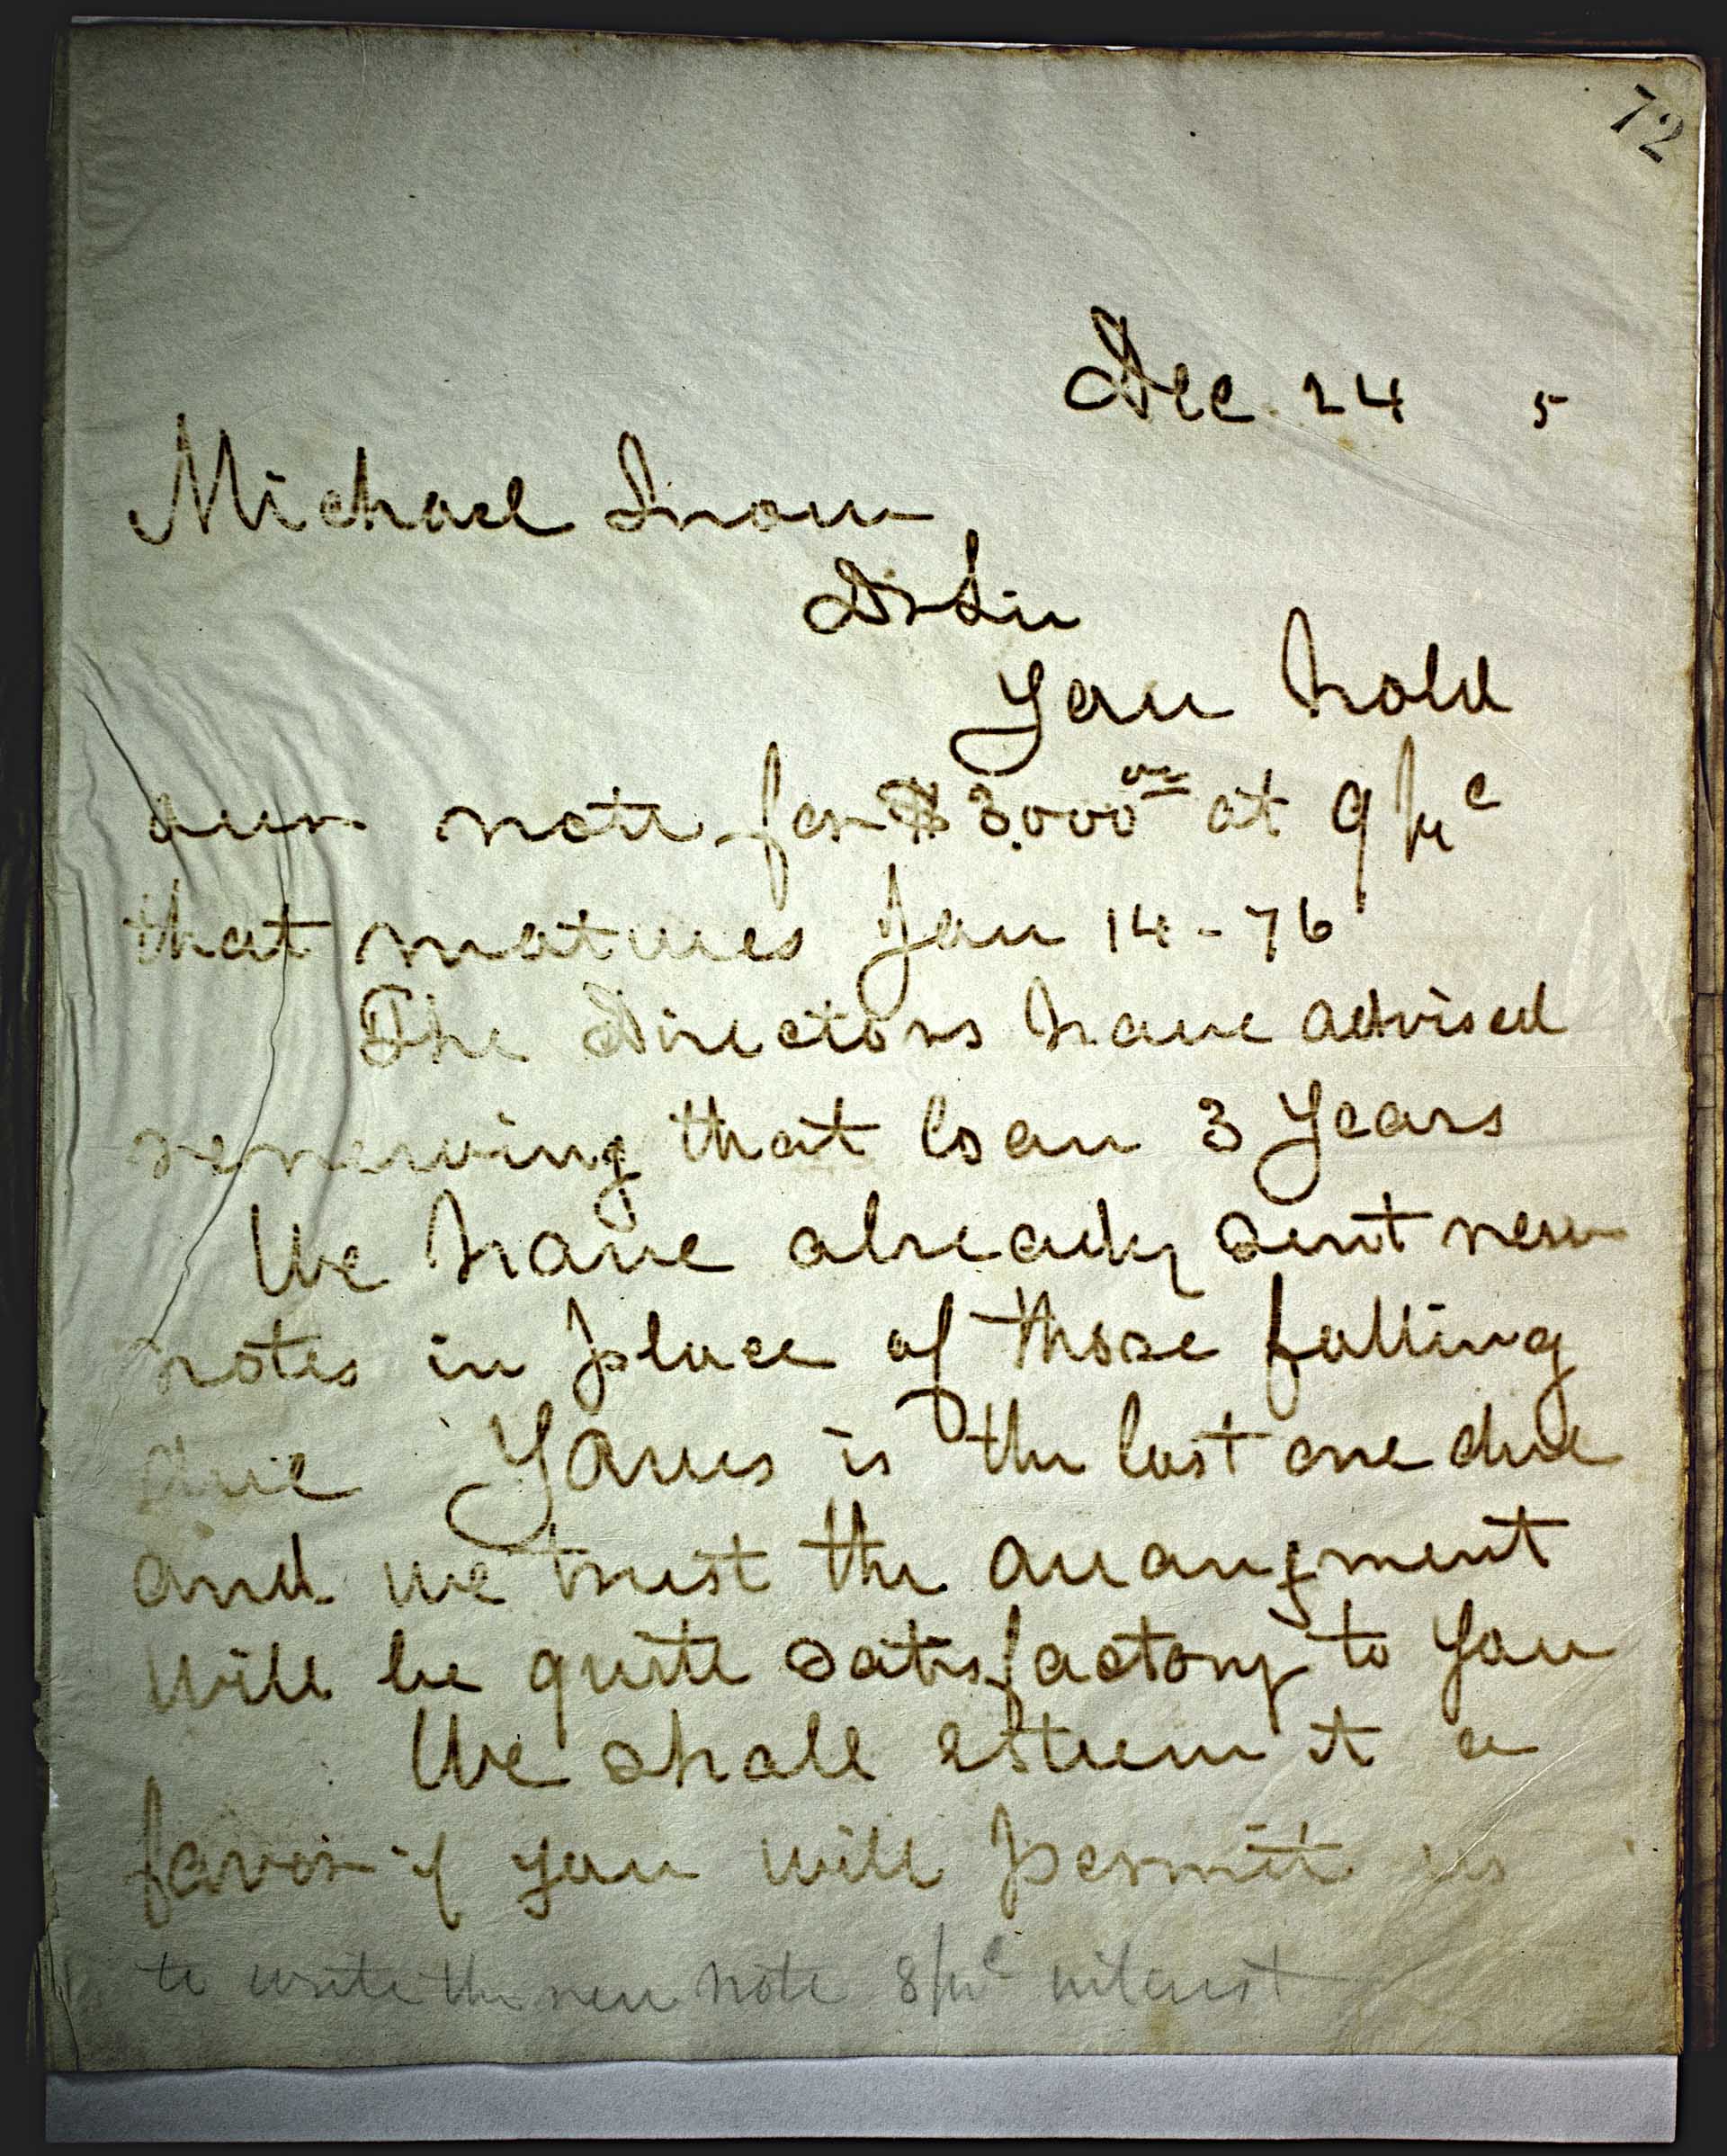 72
Dec. 24 5
Michael Snow
Dr Sir
You hold
our note for $3.000 00 at 9 pr c
that matures Jan 14-76
The Directors have advised
renewing that loan 3 Years
We have already sent new
notes in place of those falling
due Yours is the last one due
and we trust the arrangment
will be quite satisfactory to you
We shall esteem it a
favor if you will permit us
to write the new note 8 pr c interest